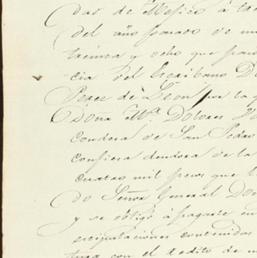 dad de Mexico á tre
del año pasado de mi
treinta y ocho que pas
cia del Escribano D
Perez de Leon por la
Doña Mª. Dolores
Condesa de San Pedro
confiesa deudora de la
cuatro mil pesos que
do Señor General Don
y se obligó á pagarle en
estipulaciones contenidas
con el redito de